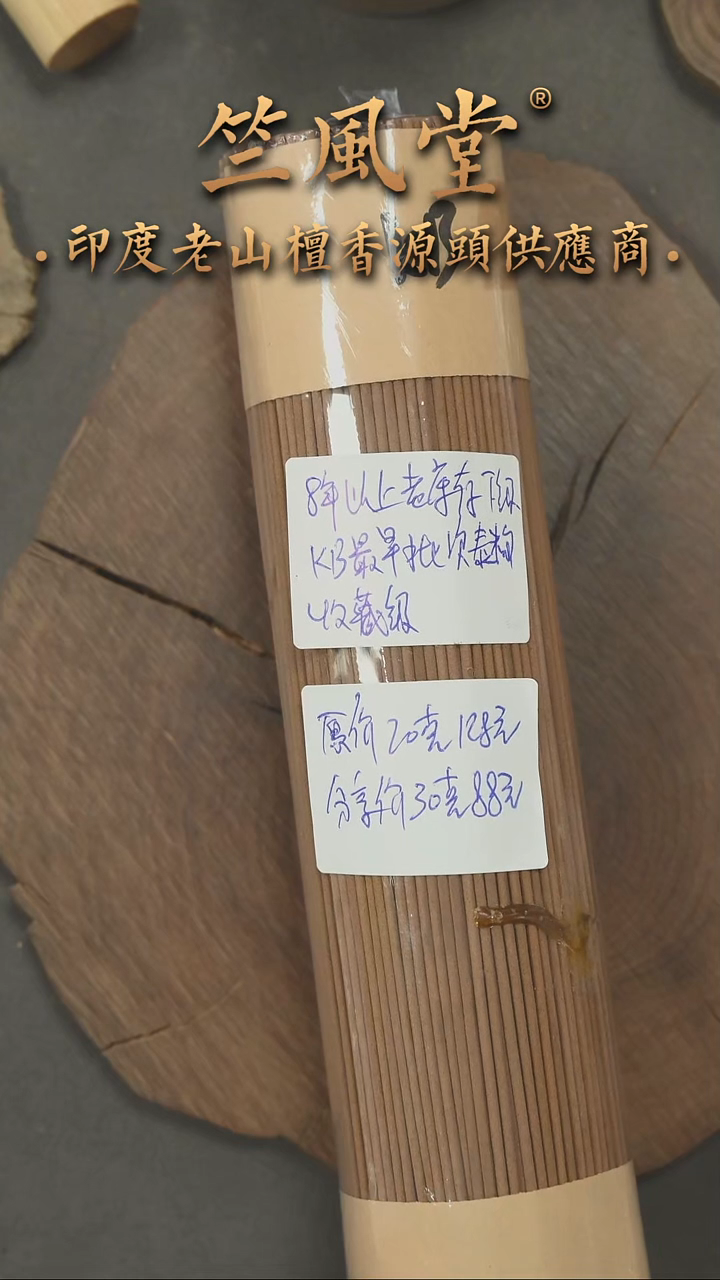 竺風堂®
·印度老山檀香源頭供應商·
8年以上老库存顶级
KB最早批次
收藏级
原价20克128元
分享价30克88元